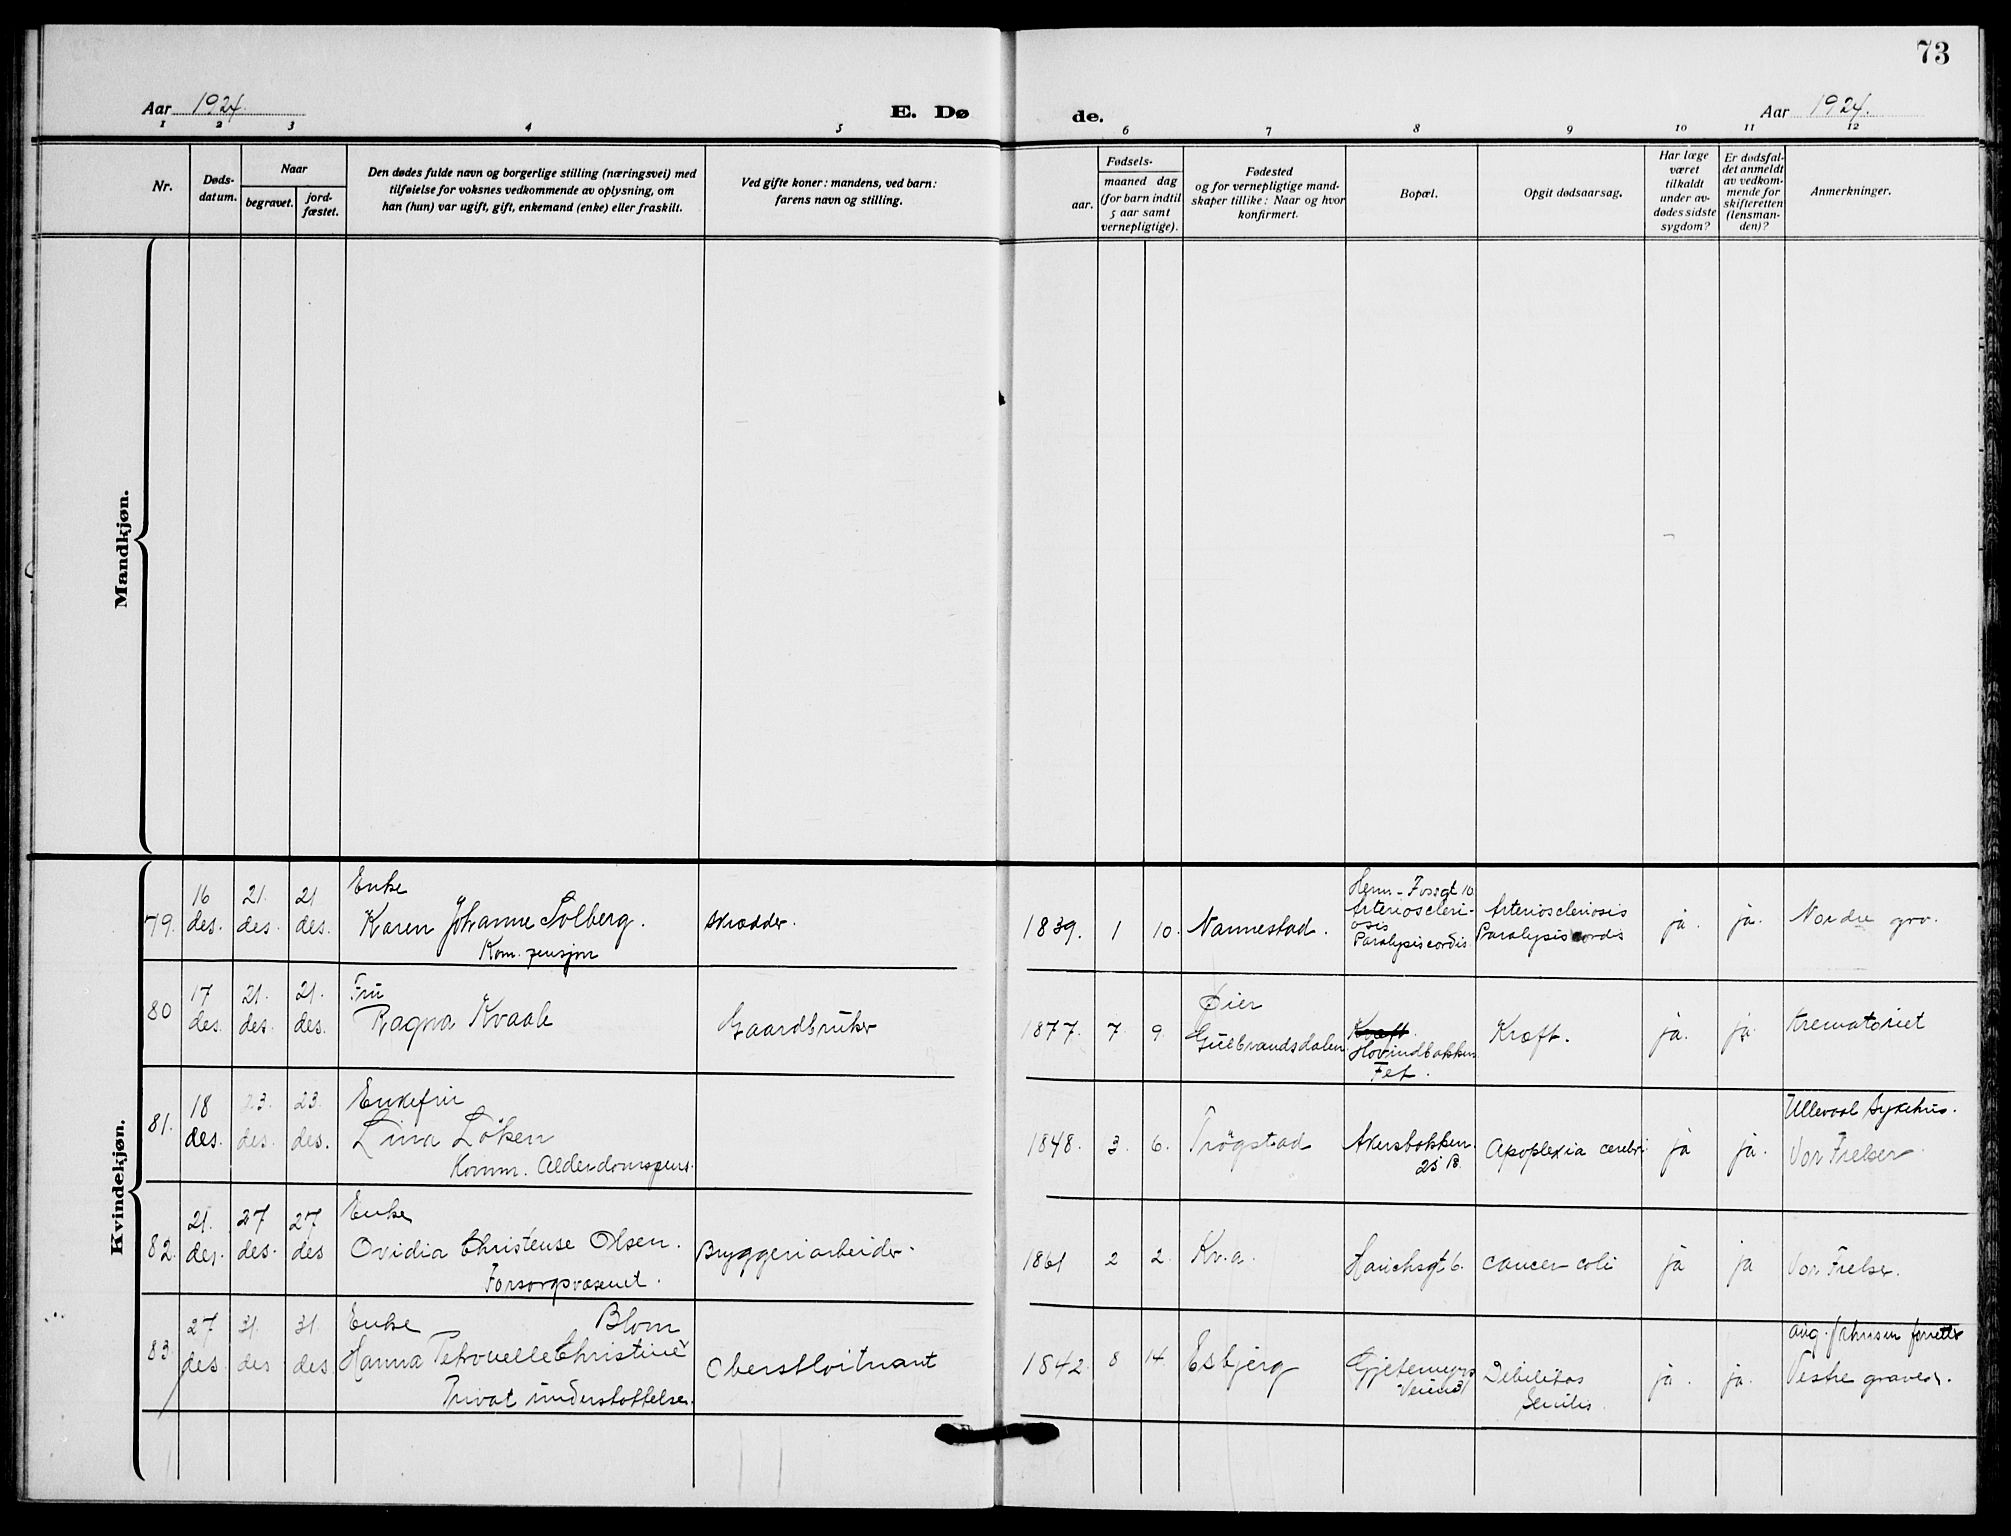 73
Aar 1924.
E. Dø
de.
Aar 1924.
1 2 3 4 5 6 7 8 9 10 11 12
Nr.
Døds-
datum.
Naar
begravet.
jord-
fæstet.
Den dødes fulde navn og borgerlige stilling (næringsvei) med
tilføielse for voksnes vedkommende av oplysning, om
han (hun) var ugift, gift, enkemand (enke) eller fraskilt.
Ved gifte koner: mandens, ved barn:
farens navn og stilling.
Fødsels-
aar.
maaned dag
(for barn indtil
5 aar samt
vernepligtige).
Fødested
og for vernepligtige mand-
skaper tillike: Naar og hvor
konfirmert.
Bopæl.
Opgit dødsaarsag.
Har læge
været
tilkaldt
under av-
dødes sidste
sygdom?
Er dødsfal-
det anmeldt
av vedkom-
mende for
skifteretten
(lensman-
den)?
Anmerkninger.
Mandkjøn.
Kvindekjøn.
79. 16 des. 21. des. 21 des.
Enke
Karen Johanne Solberg.
Kom. pensjon
skrædder.
1839. 1 10. Nannestad.
Arterioscleri-
osis
Paralysis cordis
Arteriosclerosis
Paralysis cordis
ja. ja. Nordre grv.
80 17 des. 21. des. 21. des.
Fru
Ragna Kvaale
Gaardbruker
1877. 7. 9.
Øier
Gulbrandsdalen.
Kræft.
Hovindbakken
Fet.
Kræft.
ja. ja. Krematoriet
81. 18 des. 23. des. 23. des.
Enkefru
Lina Løken
Komm. Alderdomspens.
1848. 3. 6. Trøgstad
Akersbakken
25 B.
Apoplexia cerebri
ja ja.
Ullevaal sykehus.
Vor Frelser.
82. 21. des. 27 des. 27 des
Enke
Ovidia Christense Olsen.
Forsorgsvæsenet.
Bryggeriarbeider.
1861 2 2. Kr.a.
Hauchsgt 6.
cancer coli
ja ja Vor Frelser.
83. 27 des. 31. des 31. des
Enke Blom
Hanna Petronelle Christine
Privat understøttelse.
Oberstløitnant
1842. 8 14. Esbjerg
Gjetemyrs
Debilitas
senilis
ja. ja.
Aug. Johnsen forrettet
Vestre graves.